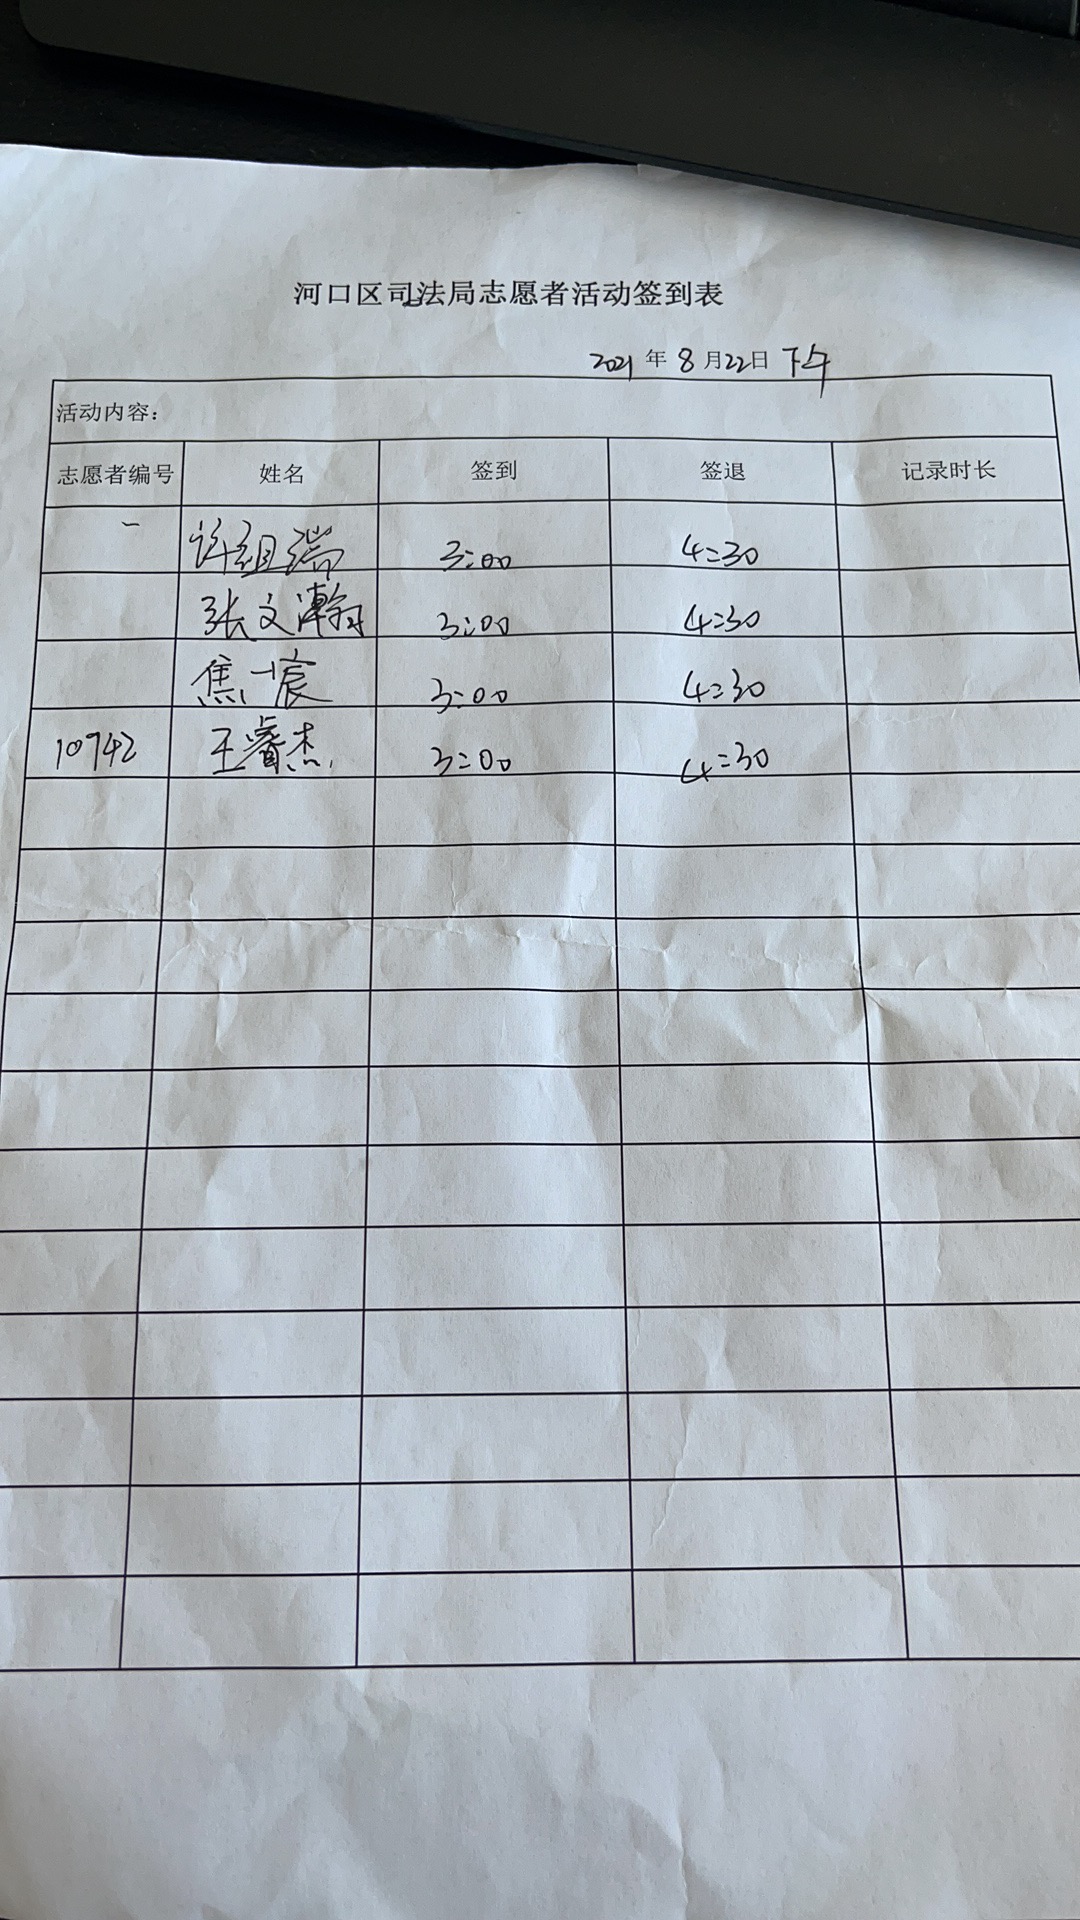 河口区司法局志愿者活动签到表
2021年8月22日 下午
活动内容：
志愿者编号 姓名 签到 签退 记录时长
许祖瑞 3:00 4:30
张文瀚 3:00 4:30
焦一宸 3:00 4:30
10742 王睿杰 3:00 4:30